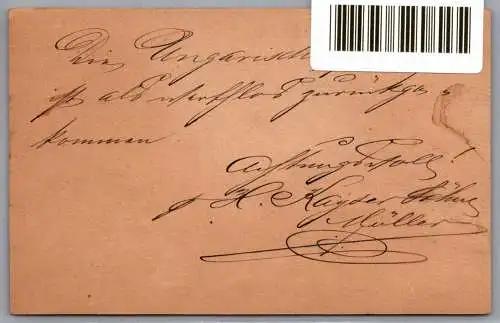 Die Ungarische
ist als werthlos zurückge
kommen
Achtungsvoll!
p H. Kayser Söhne
Müller